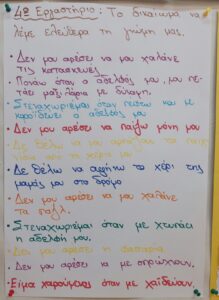 4ο Εργαστήριο: Το δικαίωμα να
λέμε ελεύθερα τη γνώμη μας.
• Δεν μου αρέσει να μου χαλάνε
τις κατασκευές.
• Πονάω όταν ο αδελφός μου, μου πε-
τάει μαξιλάρια με δύναμη.
• Στεναχωριέμαι όταν πέφτω και με
κοροϊδεύει ο αδελφός μου
• Δεν μου αρέσει να παίζω μόνη μου
• Δε θέλω να μου
από τα χέρια μου.
• Δε θέλω να αφήνω το χέρι της
μαμάς μου στο δρόμο
• Δεν μου αρέσει να μου χαλάνε
τα παζλ.
• Στεναχωριέμαι όταν με χτυπάει
η αδελφή μου.
• Δεν μου αρέσει η φασαρία.
• Δεν μου αρέσει να με σπρώχνουν.
• Είμαι χαρούμενος όταν με χαϊδεύουν.